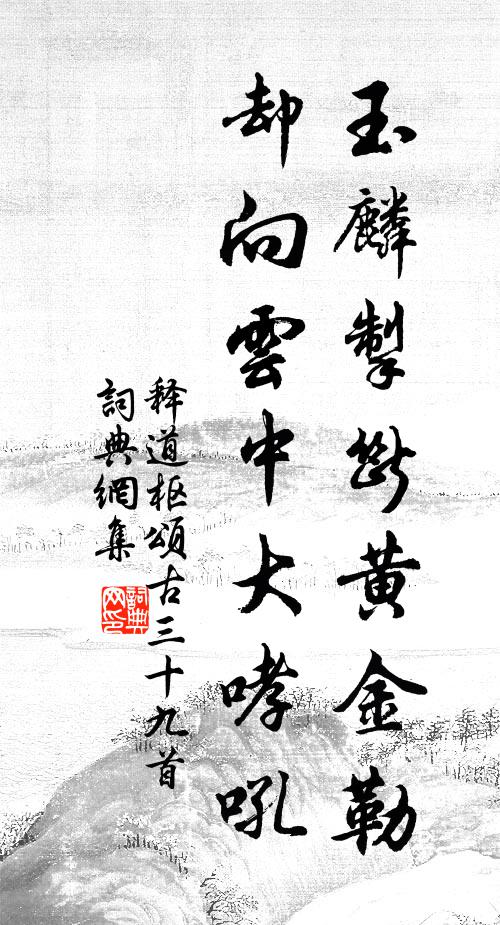 玉麟掣斷黄金勒
却向雲中大哮吼
释道枢頌古三十九首
詞典網集
詞典网印